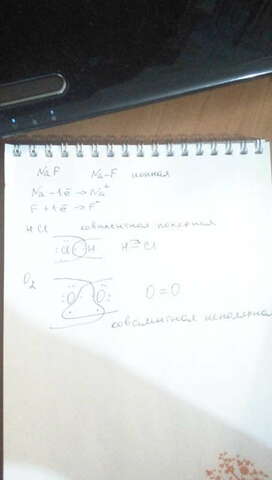 NaF Na-F ионная
Na - 1ē → Na⁺
F + 1ē → F⁻
HCl ковалентная полярная
:Cl: H H→Cl
O₂
:O: :O: O=O
ковалентная неполярная